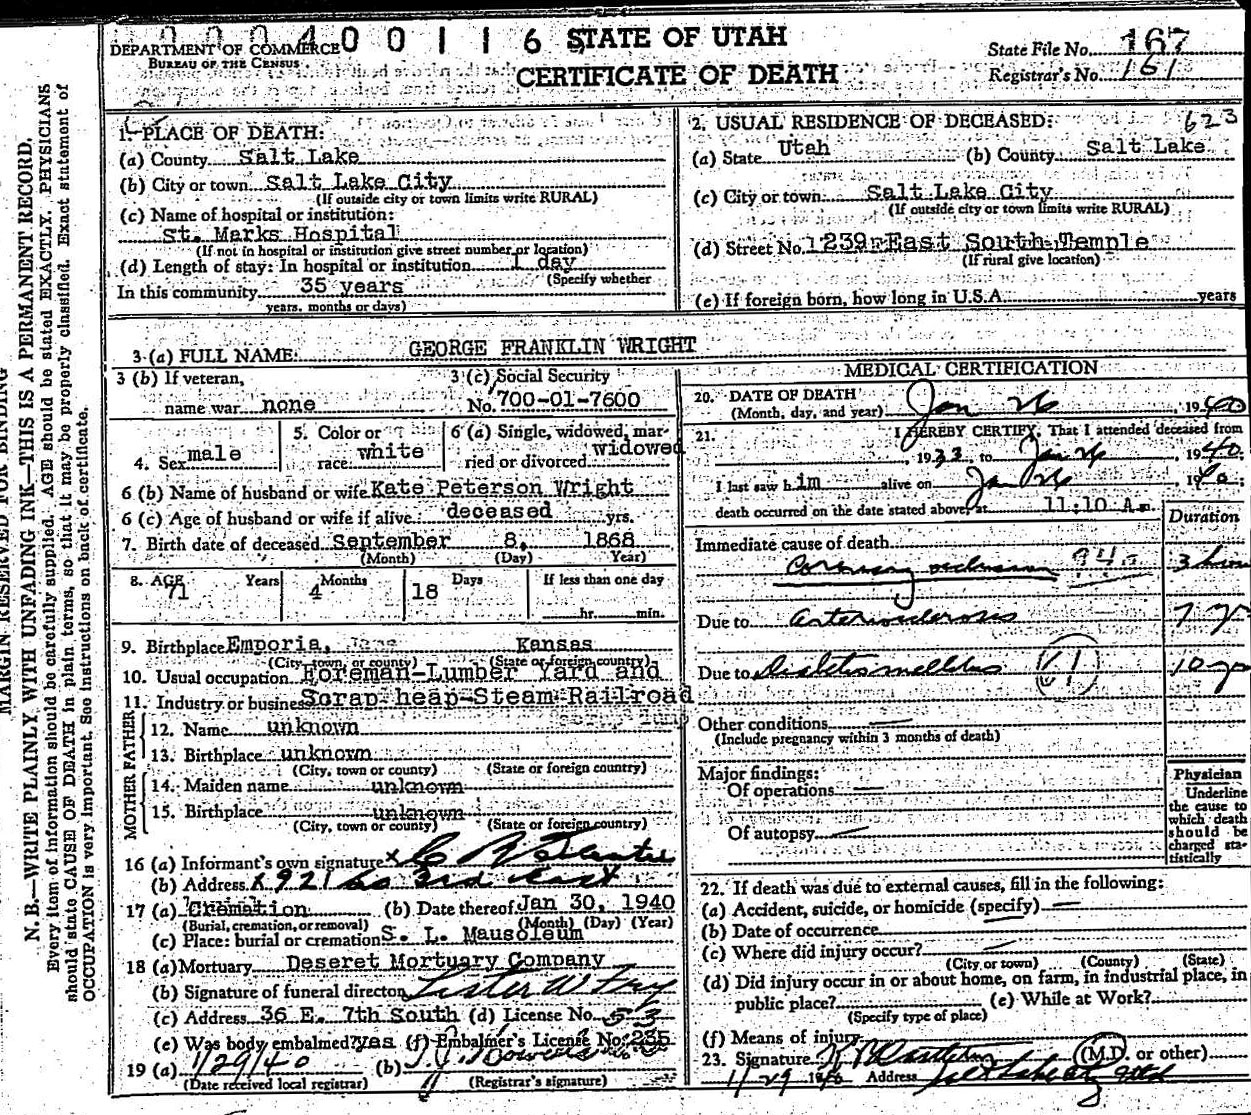 0000400116
STATE OF UTAH
DEPARTMENT OF COMMERCE
BUREAU OF THE CENSUS
CERTIFICATE OF DEATH
State File No. 167
Registrar's No. 161
MARGIN RESERVED FOR BINDING
N. B.—WRITE PLAINLY WITH UNFADING INK—THIS IS A PERMANENT RECORD.
Every item of information should be carefully supplied. AGE should be stated EXACTLY. PHYSICIANS
should state CAUSE OF DEATH in plain terms, so that it may be properly classified. Exact statement of
OCCUPATION is very important. See instructions on back of certificate.
1. PLACE OF DEATH:
(a) County Salt Lake
(b) City or town Salt Lake City
(If outside city or town limits write RURAL)
(c) Name of hospital or institution:
St. Marks Hospital
(If not in hospital or institution give street number or location)
(d) Length of stay: In hospital or institution 1 day
(Specify whether
In this community 35 years
years, months or days)
2. USUAL RESIDENCE OF DECEASED: 623
(a) State Utah (b) County Salt Lake
(c) City or town Salt Lake City
(If outside city or town limits write RURAL)
(d) Street No. 1239 East South Temple
(If rural give location)
(e) If foreign born, how long in U.S.A. years
3 (a) FULL NAME GEORGE FRANKLIN WRIGHT
3 (b) If veteran, 3 (c) Social Security
name war none No. 700-01-7600
4. Sex male 5. Color or race white 6 (a) Single, widowed, married or divorced widowed
6 (b) Name of husband or wife Kate Peterson Wright
6 (c) Age of husband or wife if alive deceased yrs.
7. Birth date of deceased September 8, 1868
(Month) (Day) Year)
8. AGE Years Months Days If less than one day
71 4 18 hr. min.
9. Birthplace Emporia, Kansas
(City, town, or county) (State or foreign country)
10. Usual occupation Foreman-Lumber Yard and
11. Industry or business Scrap heap-Steam Railroad
FATHER
12. Name unknown
13. Birthplace unknown
(City, town or county) (State or foreign country)
MOTHER
14. Maiden name unknown
15. Birthplace unknown
(City, town or county) (State or foreign country)
16 (a) Informant's own signature x C R
(b) Address x 921 So 3rd East
17 (a) Cremation (b) Date thereof Jan 30, 1940
(Burial, cremation, or removal) (Month) (Day) (Year)
(c) Place: burial or cremation S. L. Mausoleum
18 (a) Mortuary Deseret Mortuary Company
(b) Signature of funeral director
(c) Address 36 E. 7th South (d) License No. 53
(e) Was body embalmed? yes (f) Embalmer's License No. 235
19 (a) 1/29/40 (b)
(Date received local registrar) (Registrar's signature)
MEDICAL CERTIFICATION
20. DATE OF DEATH
(Month, day, and year) Jan 26, 1940
21. I HEREBY CERTIFY, That I attended deceased from
, 1933, to Jan 26, 1940.
I last saw him alive on Jan 26, 1940;
death occurred on the date stated above, at 11:10 A m.
Duration
Immediate cause of death
Coronary occlusion 94a 3 hrs
Due to Arteriosclerosis 7 yr
Due to Diabetes mellitus 61 10 yrs
Other conditions
(Include pregnancy within 3 months of death)
Major findings:
Of operations
Of autopsy
Physician
Underline
the cause to
which death
should be
charged sta-
tistically
22. If death was due to external causes, fill in the following:
(a) Accident, suicide, or homicide (specify)
(b) Date of occurrence
(c) Where did injury occur?
(City or town) (County) (State)
(d) Did injury occur in or about home, on farm, in industrial place, in
public place? (e) While at Work?
(Specify type of place)
(f) Means of injury
23. Signature (M.D. or other)
1/29 1940 Address Salt Lake City Utah